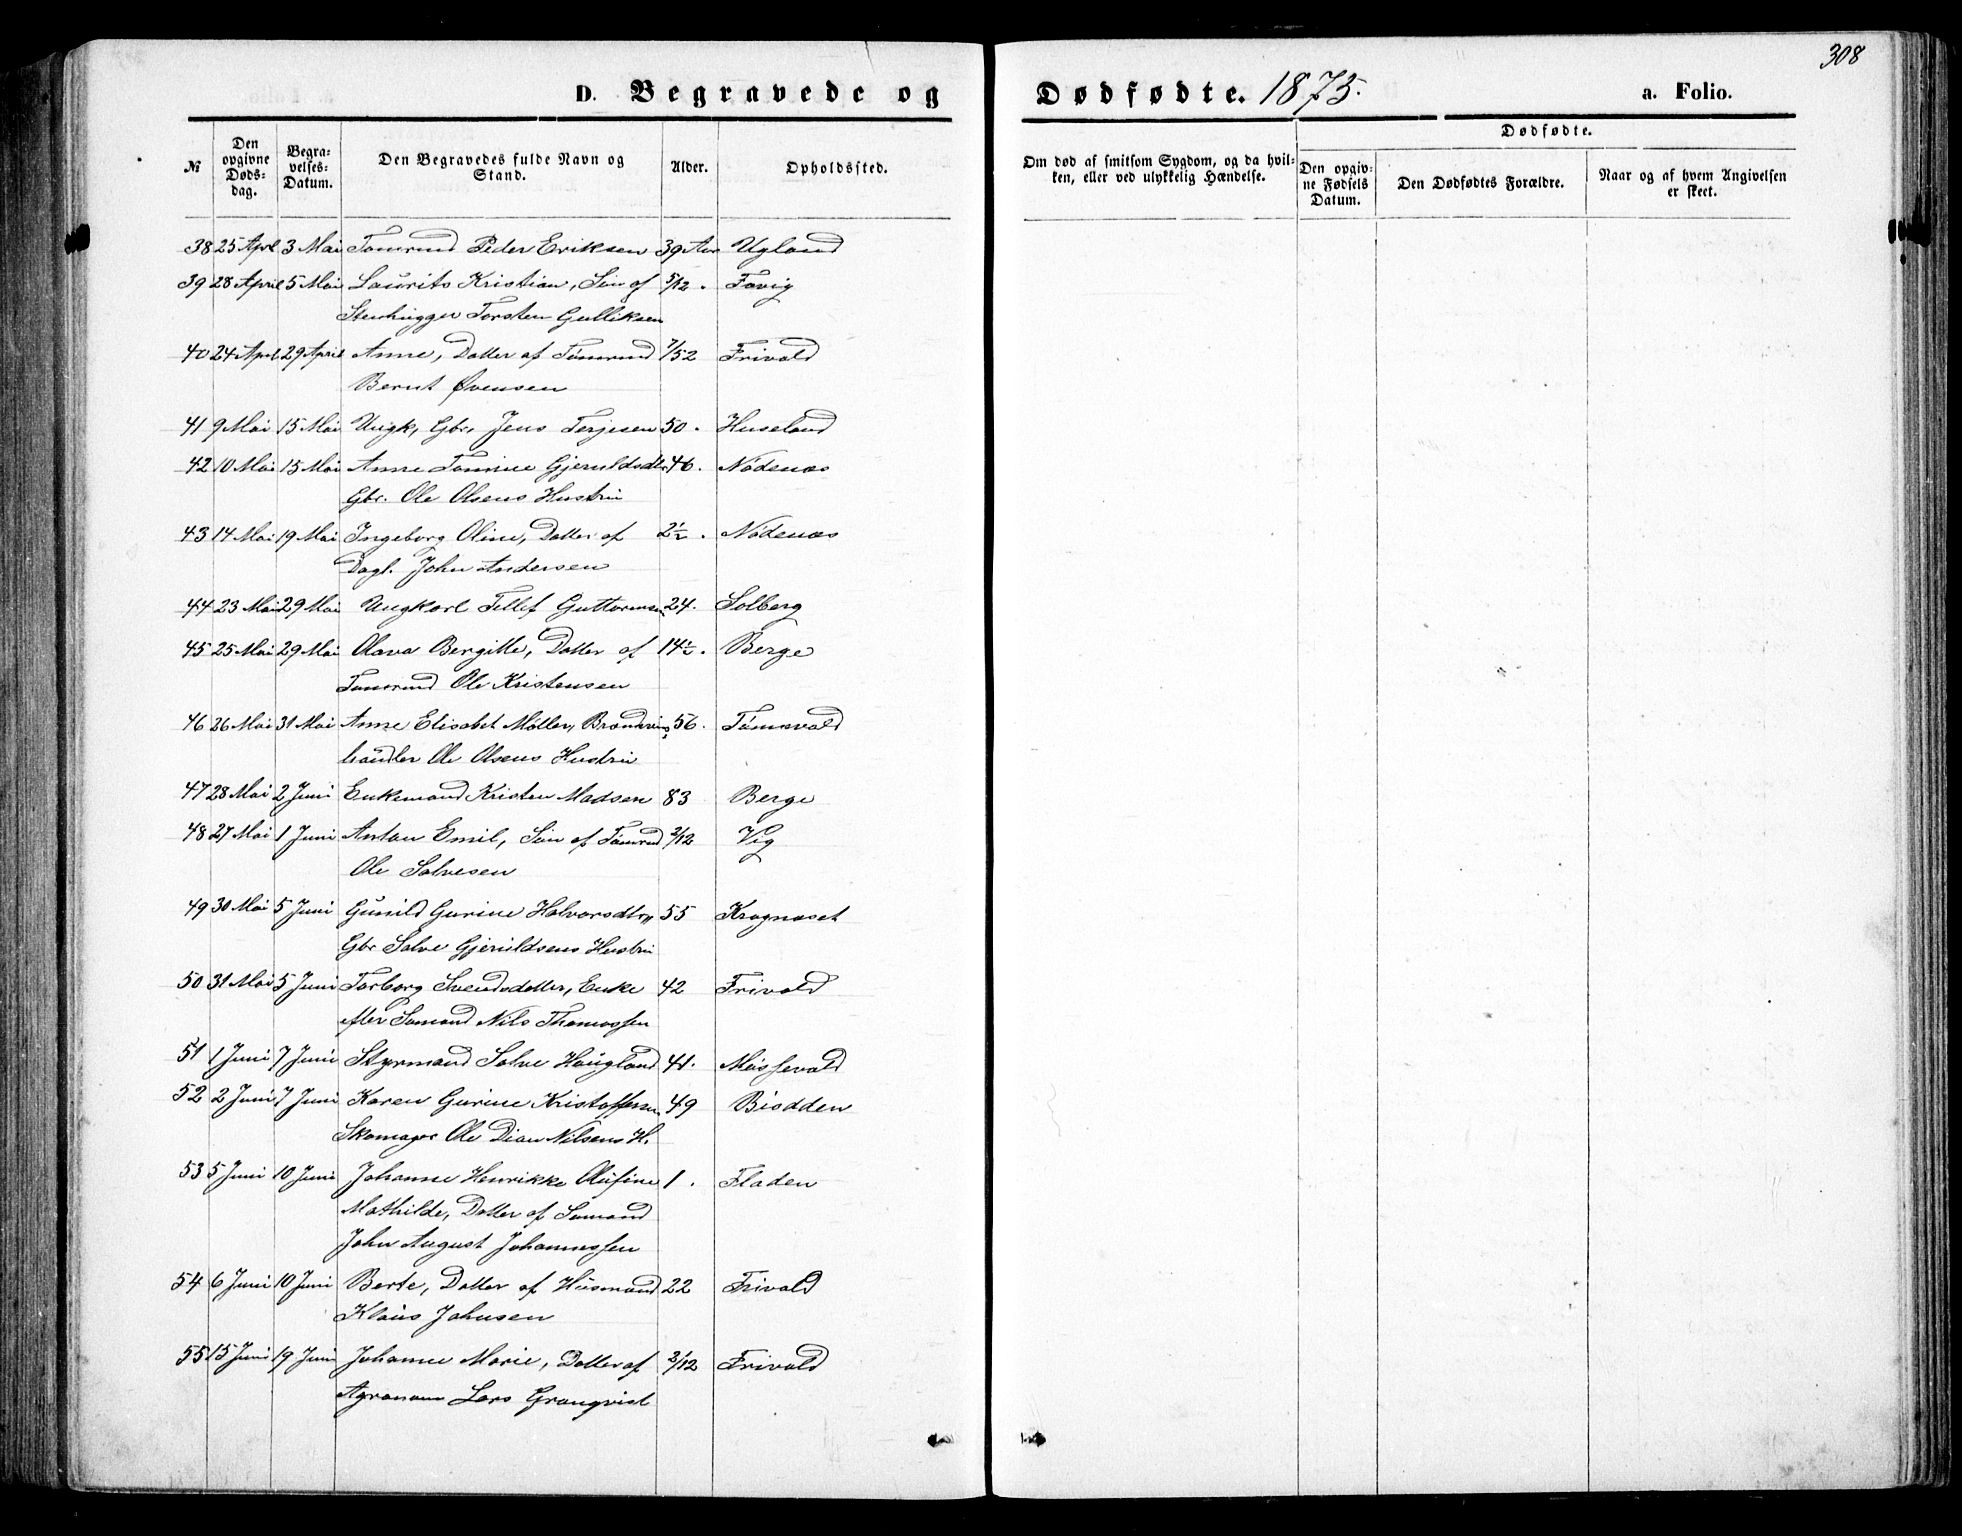 308
D. Begravede og Dødfødte. 1875. a. Folio.
№ Den opgivne Døds-dag. Begra-velses-Datum. Den Begravedes fulde Navn og Stand. Alder. Opholdssted. Om død af smitsom Sygdom, og da hvil-ken, eller ved ulykkelig Hændelse. Dødfødte. Den opgiv-ne Fødsels Datum. Den Dødfødtes Forældre. Naar og af hvem Angivelsen er skeet.
38 25 Aprl 3 Mai Tømrmd Peder Eriksen 39 Aar Ugland
39 28 April 5 Mai Laurits Kristian, Søn af 5/12 . Favig
Stenhugger Torsten Gulliksen
40 24 Aprl 29 April Anne, Datter af Tømrmd 7/52 Frivold
Bernt Øvensen
41 9 Mai 15 Mai Ungk, Gbr, Jens Terjesen 50 . Huseland
42 10 Mai 15 Mai Anne Tomine Gjeruldsdtr 46 . Nødenæs
Gbr. Ole Olsens Hustru
43 14 Mai 19 Mai Ingeborg Oline, Datter af 2½ . Nødenæs
Dagl. John Andersen
44 23 Mai 29 Mai Ungkarl Tellef Guttormsen 24. Solberg
45 25 Mai 29 Mai Olava Bergitte, Datter af 14½ . Berge
Tømrmd Ole Kristensen
46 26 Mai 31 Mai Anne Elisabet Møller, Brændevins 56 . Tønnevold
handler Ole Olsens Hustru
47 28 Mai 2 Juni Enkemand Kristen Madsen 83 Berge
48 27 Mai 1 Juni Anton Emil, Søn af Tømrmd 2/12 Vig
Ole Salvesen
49 30 Mai 5 Juni Gunild Gurine Halvorsdtr, 55 Kragnæset
Gbr Salve Gjeruldsens Hustru
50 31 Mai 5 Juni Torborg Svendsdatter, Enke 42 Frivold
efter Sømand Nils Thomassen
51 1 Juni 7 Juni Styrmand Salve Haugland 41. Møssevold
52 2 Juni 7 Juni Karen Gurine Kristoffersen 49 Biodden
Skomager Ole Dian Nilsens H.
53 5 Juni 10 Juni Johanne Henrikke Olufine 1 . Fladen
Mathilde, Datter af Sømand
John August Johannessen
54 6 Juni 10 Juni Berte, Datter af Husmand 22 Frivold
Klaus Johnsen
55 15 Juni 19 Juni Johanne Marie, Datter af 2/12 Frivold
Agronom Lars Granqvist